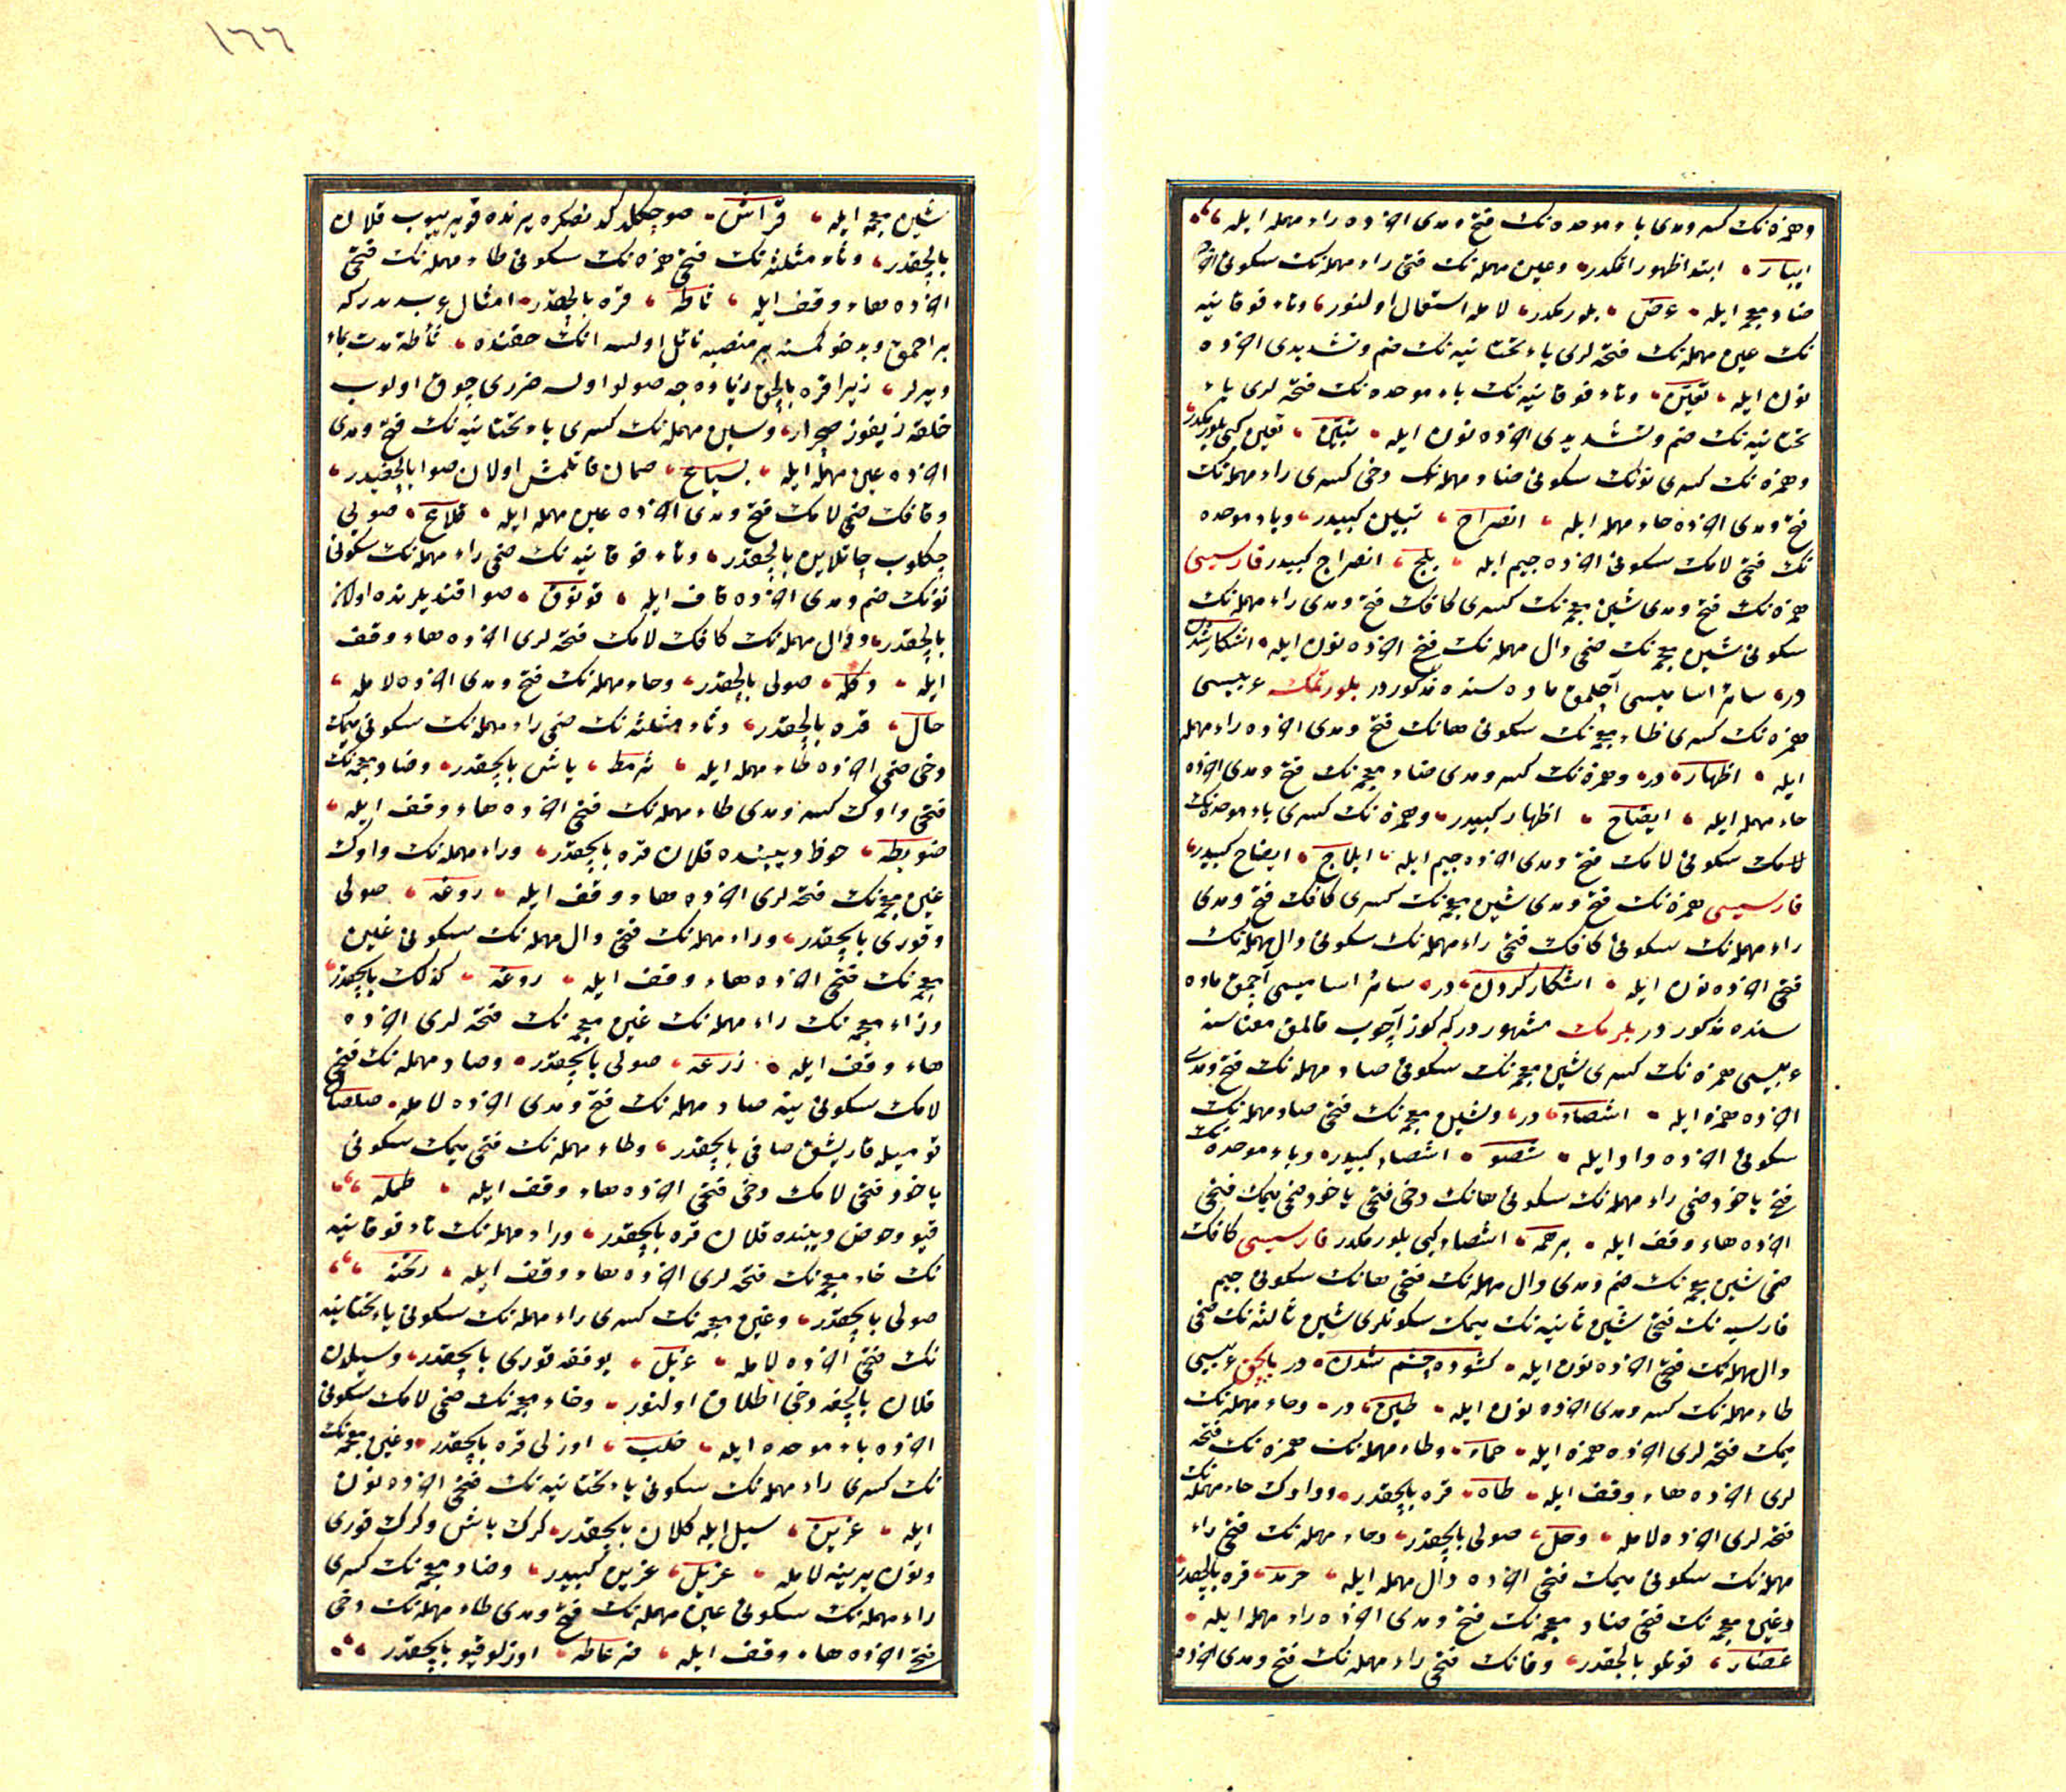 وهمزه نك كسر ومدى باء موحده نك فتح ومدى اخرده راء مهمله ايله
ابتدا ظهور وعين مهمله نك فتحى راء مهمله نك سكونى اخرده
ضاد معجمه ايله عرض بلورمكدر لامله استعمال اولنور وتاء فوقانيه
نك عين مهمله نك فتحه لرى ياء تحتانيه نك ضم وتشديدى اخرده
نون ايله تعيّن وتاء فوقانيه نك باء موحده نك فتحه لرى ياء
تحتانيه نك ضم وتشديدى اخرده نون ايله تبيّن تعين كبى بلورمكدر
وهمزه نك كسرى نونك سكونى صاد مهمله نك دخى كسرى راء مهمله نك
فتح ومدى اخرده حاء مهمله ايله انصراح تبيين كبيدر وباء موحده
نك فتحى لامك سكونى اخرده جيم ايله بلج انصراح كبيدر فارسيسى
همزه نك فتح ومدى شين معجمه نك كسرى كافك فتح ومدى راء مهمله نك
سكونى شين معجمه نك ضمى دال مهمله نك فتحى اخرده نون ايله اشكار شدن
در سائر اساميسى آچلمق ماده سنده مذكوردر بلورتمك عربيسى
همزه نك كسرى ظاء معجمه نك سكونى هانك فتح ومدى اخرده راء مهمله
ايله اظهار در وهمزه نك كسر ومدى ضاد معجمه نك فتح ومدى اخرده
حاء مهمله ايله ايضاح اظهار كبيدر وهمزه نك كسرى باء موحده نك
سكونى لامك فتح ومدى اخرده جيم ايله ابلاج ايضاح كبيدر
فارسيسى همزه نك فتح ومدى شين معجمه نك كسرى كافك فتح ومدى
راء مهمله نك سكونى كافك فتحى راء مهمله نك سكونى دال مهمله نك
فتحى اخرده نون ايله اشكار كردن در سائر اساميسى آچمق ماده
سنده مذكوردر بلرمك مشهوردركه كوز آچوب قالمق معناسنه
عربيسى همزه نك كسرى شين معجمه نك سكونى صاد مهمله نك فتح ومدى
اخرده همزه ايله اشصاء در وشين معجمه نك فتحى صاد مهمله نك
سكونى اخرده واو ايله شصو اشصاء كبيدر وباء موحده نك
فتح ياخود ضمى راء مهمله نك سكونى هانك دخى فتحى ياخود ضمى ميمك فتحى
اخرده هاء وقف ايله برهمه اشصاء كبى بلورمكدر فارسيسى كافك
ضمى شين معجمه نك ضم ومدى دال مهمله نك فتحى هانك سكونى جيم
فارسيه نك فتحى شين ثانيه نك ميمك سكونلرى شين ثالثه نك ضمى
دال مهمله نك فتحى اخرده نون ايله كشوده چشم شدن در بالچق عربيسى
طاء مهمله نك كسر ومدى اخرده نون ايله طين در وحاء مهمله نك
ميمك فتحه لرى اخرده همزه ايله حمأ وطاء مهمله نك همزه نك فتحه
لرى اخرده هاء وقف ايله طاه قره بالچقدر وواوك حاء مهمله نك
فتحه لرى اخرده لامله وحل صولى بالچقدر وحاء مهمله نك فتحى راء
مهمله نك سكونى ميمك فتحى اخرده دال مهمله ايله حرمد قره بالچقدر
وغين معجمه نك فتحى ضاد معجمه نك فتح ومدى اخرده راء مهمله ايله
غضار بالچقدر وفانك فتحى راء مهمله نك فتح ومدى اخرده
١٦٦
شين معجمه ايله فراش صو چكلدكدنصكره يرنده قلان
بالچقدر وثاء مثلثه نك فتحى همزه نك سكونى طاء مهمله نك فتحى
اخرده هاء وقف ايله ثأطه قره بالچقدر امثال عربدندركه
بر احمق وبدخو كمسنه بر منصبه نائل اولسه انك حقنده ثأطة مدت بماء
ديرلر زيرا قره بالچق زياده جه صولو اولسه ضررى چوق اولوب
وسين مهمله نك كسرى ياء تحتانيه نك فتح ومدى
اخرده عين مهمله ايله سياع صمان قاتلمش اولان صوا بالچغيدر
وقافك ضمى لامك فتح ومدى اخرده عين مهمله ايله قلاع صويى
چكلوب چاتلاين بالچقدر وتاء فوقانيه نك ضمى راء مهمله نك سكونى
نونك ضم ومدى اخرده قاف ايله ترنوق صو اقنديلرنده اولان
بالچقدر ودال مهمله نك كافك لامك فتحه لرى اخرده هاء وقف
ايله دكله صولى بالچقدر وحاء مهمله نك فتح ومدى اخرده لامله
حال قره بالچقدر وثاء مثلثه نك ضمى راء مهمله نك سكونى ميمك
دخى ضمى اخرده طاء مهمله ايله ثرمط ياش بالچقدر وضاد معجمه نك
فتحى واوك كسر ومدى طاء مهمله نك فتحى اخرده هاء وقف ايله
ضويطه حوض ديبنده قلان قره بالچقدر وراء مهمله نك واوك
غين معجمه نك فتحه لرى اخرده هاء وقف ايله روغه صولى
وقورى بالچقدر وراء مهمله نك فتحى دال مهمله نك سكونى غين
معجمه نك فتحى اخرده هاء وقف ايله ردغه كذلك بالچقدر
وزاء معجمه نك راء مهمله نك غين معجمه نك فتحه لرى اخرده
هاء وقف ايله زرغه صولى بالچقدر وصاد مهمله نك فتحى
لامك سكونى ينه صاد مهمله نك فتح ومدى اخرده لامله صلصال
قوميله قاريشق صافى بالچقدر وطاء مهمله نك فتحى ميمك سكونى
ياخود فتحى لامك دخى فتحى اخرده هاء وقف ايله طمله
قيو وحوض ديبنده قلان قره بالچقدر وراء مهمله نك تاء فوقانيه
نك خاء معجمه نك فتحه لرى اخرده هاء وقف ايله رتخه
صولى بالچقدر وغين معجمه نك كسرى راء مهمله نك سكونى ياء تحتانيه
نك فتحى اخرده لامله غريل يوفقه قورى بالچقدر وسيلدن
قلان بالچغه دخى اطلاق اولنور وخاء معجمه نك ضمى لامك سكونى
اخرده باء موحده ايله خلب اوزلى قره بالچقدر وغين معجمه
نك كسرى راء مهمله نك سكونى ياء تحتانيه نك فتحى اخرده نون
ايله غرين سيل ايله كلان بالچقدر كرك ياش وكرك قورى
ونون يرينه لامله غريل غرين كبيدر وضاد معجمه نك كسرى
راء مهمله نك سكونى غين معجمه نك فتح ومدى طاء مهمله نك دخى
فتحى اخرده هاء وقف ايله ضرغاطه اوزلو قيو بالچقدر